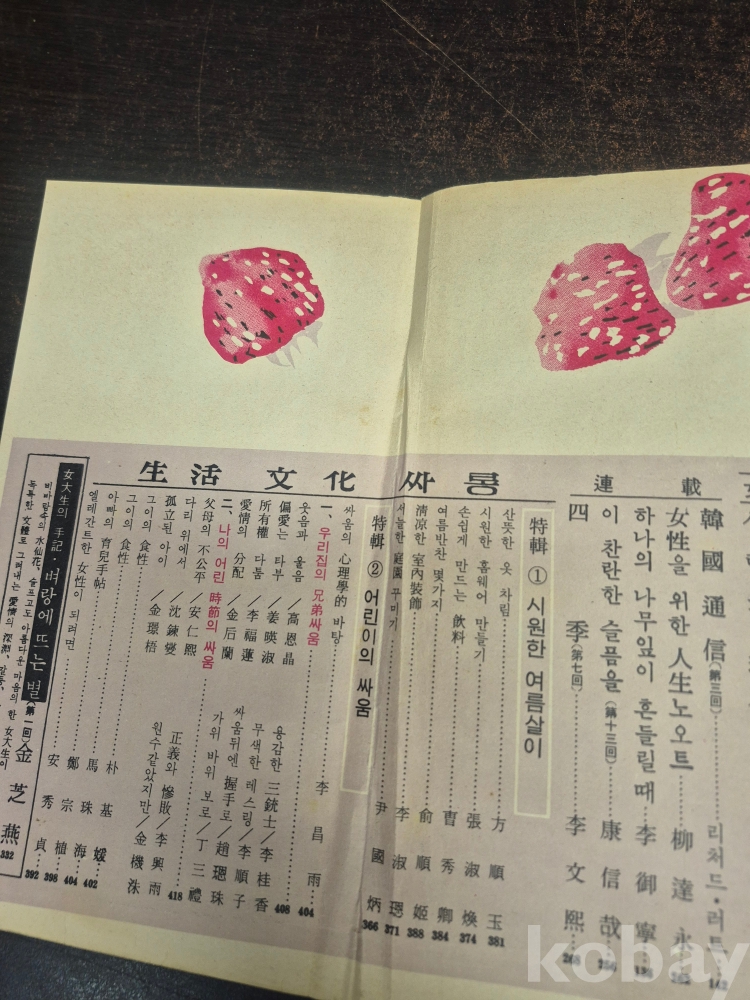 連載
韓國通信(第三回) 리처드·러트 142
女性을 위한 人生노오트 柳達永
하나의 나무잎이 흔들릴때 李御寧
이 찬란한 슬픔을(第十三回) 康信哉
四季(第七回) 李文熙 268
生活文化싸롱
特輯 ① 시원한 여름살이
산뜻한 옷 차림 方順玉 381
시원한 홈웨어 만들기 張淑煥 374
손쉽게 만드는 飮料 曺秀卿 384
여름반찬 몇가지 兪順姬 388
淸凉한 室內裝飾 李淑瑥 371
서늘한 庭園 꾸미기 尹國炳 366
特輯 ② 어린이의 싸움
싸움의 心理學的 바탕 李昌雨 404
一、우리집의 兄弟싸움
웃음과 울음/高恩晶 용감한 三銃士/李桂香
偏愛는 타부/姜暎淑 무색한 레스링/李順子
所有權 다툼/李福蓮 싸움뒤엔 握手로/趙璁珠
愛情의 分配/金后蘭 가위 바위 보로/丁三禮
408
二、나의 어린 時節의 싸움
父母의 不公平/安仁熙 正義와 慘敗/李興雨
다리 위에서/沈鍊燮 원수같았지만/金機洙
孤立된 아이/金璟梧
418
그이의 食性
그이의 食性 朴基媛
아빠의 育兒手帖 馬珠海 402
엘레간트한 女性이 되려면 鄭宗植 404
安秀貞 398
392
女大生의 手記·벼랑에 뜨는 별(第一回) 金芝燕 332
비바람속의 水仙花、슬프고도 아름다운 마음의 한 女大生이
독특한 女體로 그려내는 愛情의 深淵
kobay